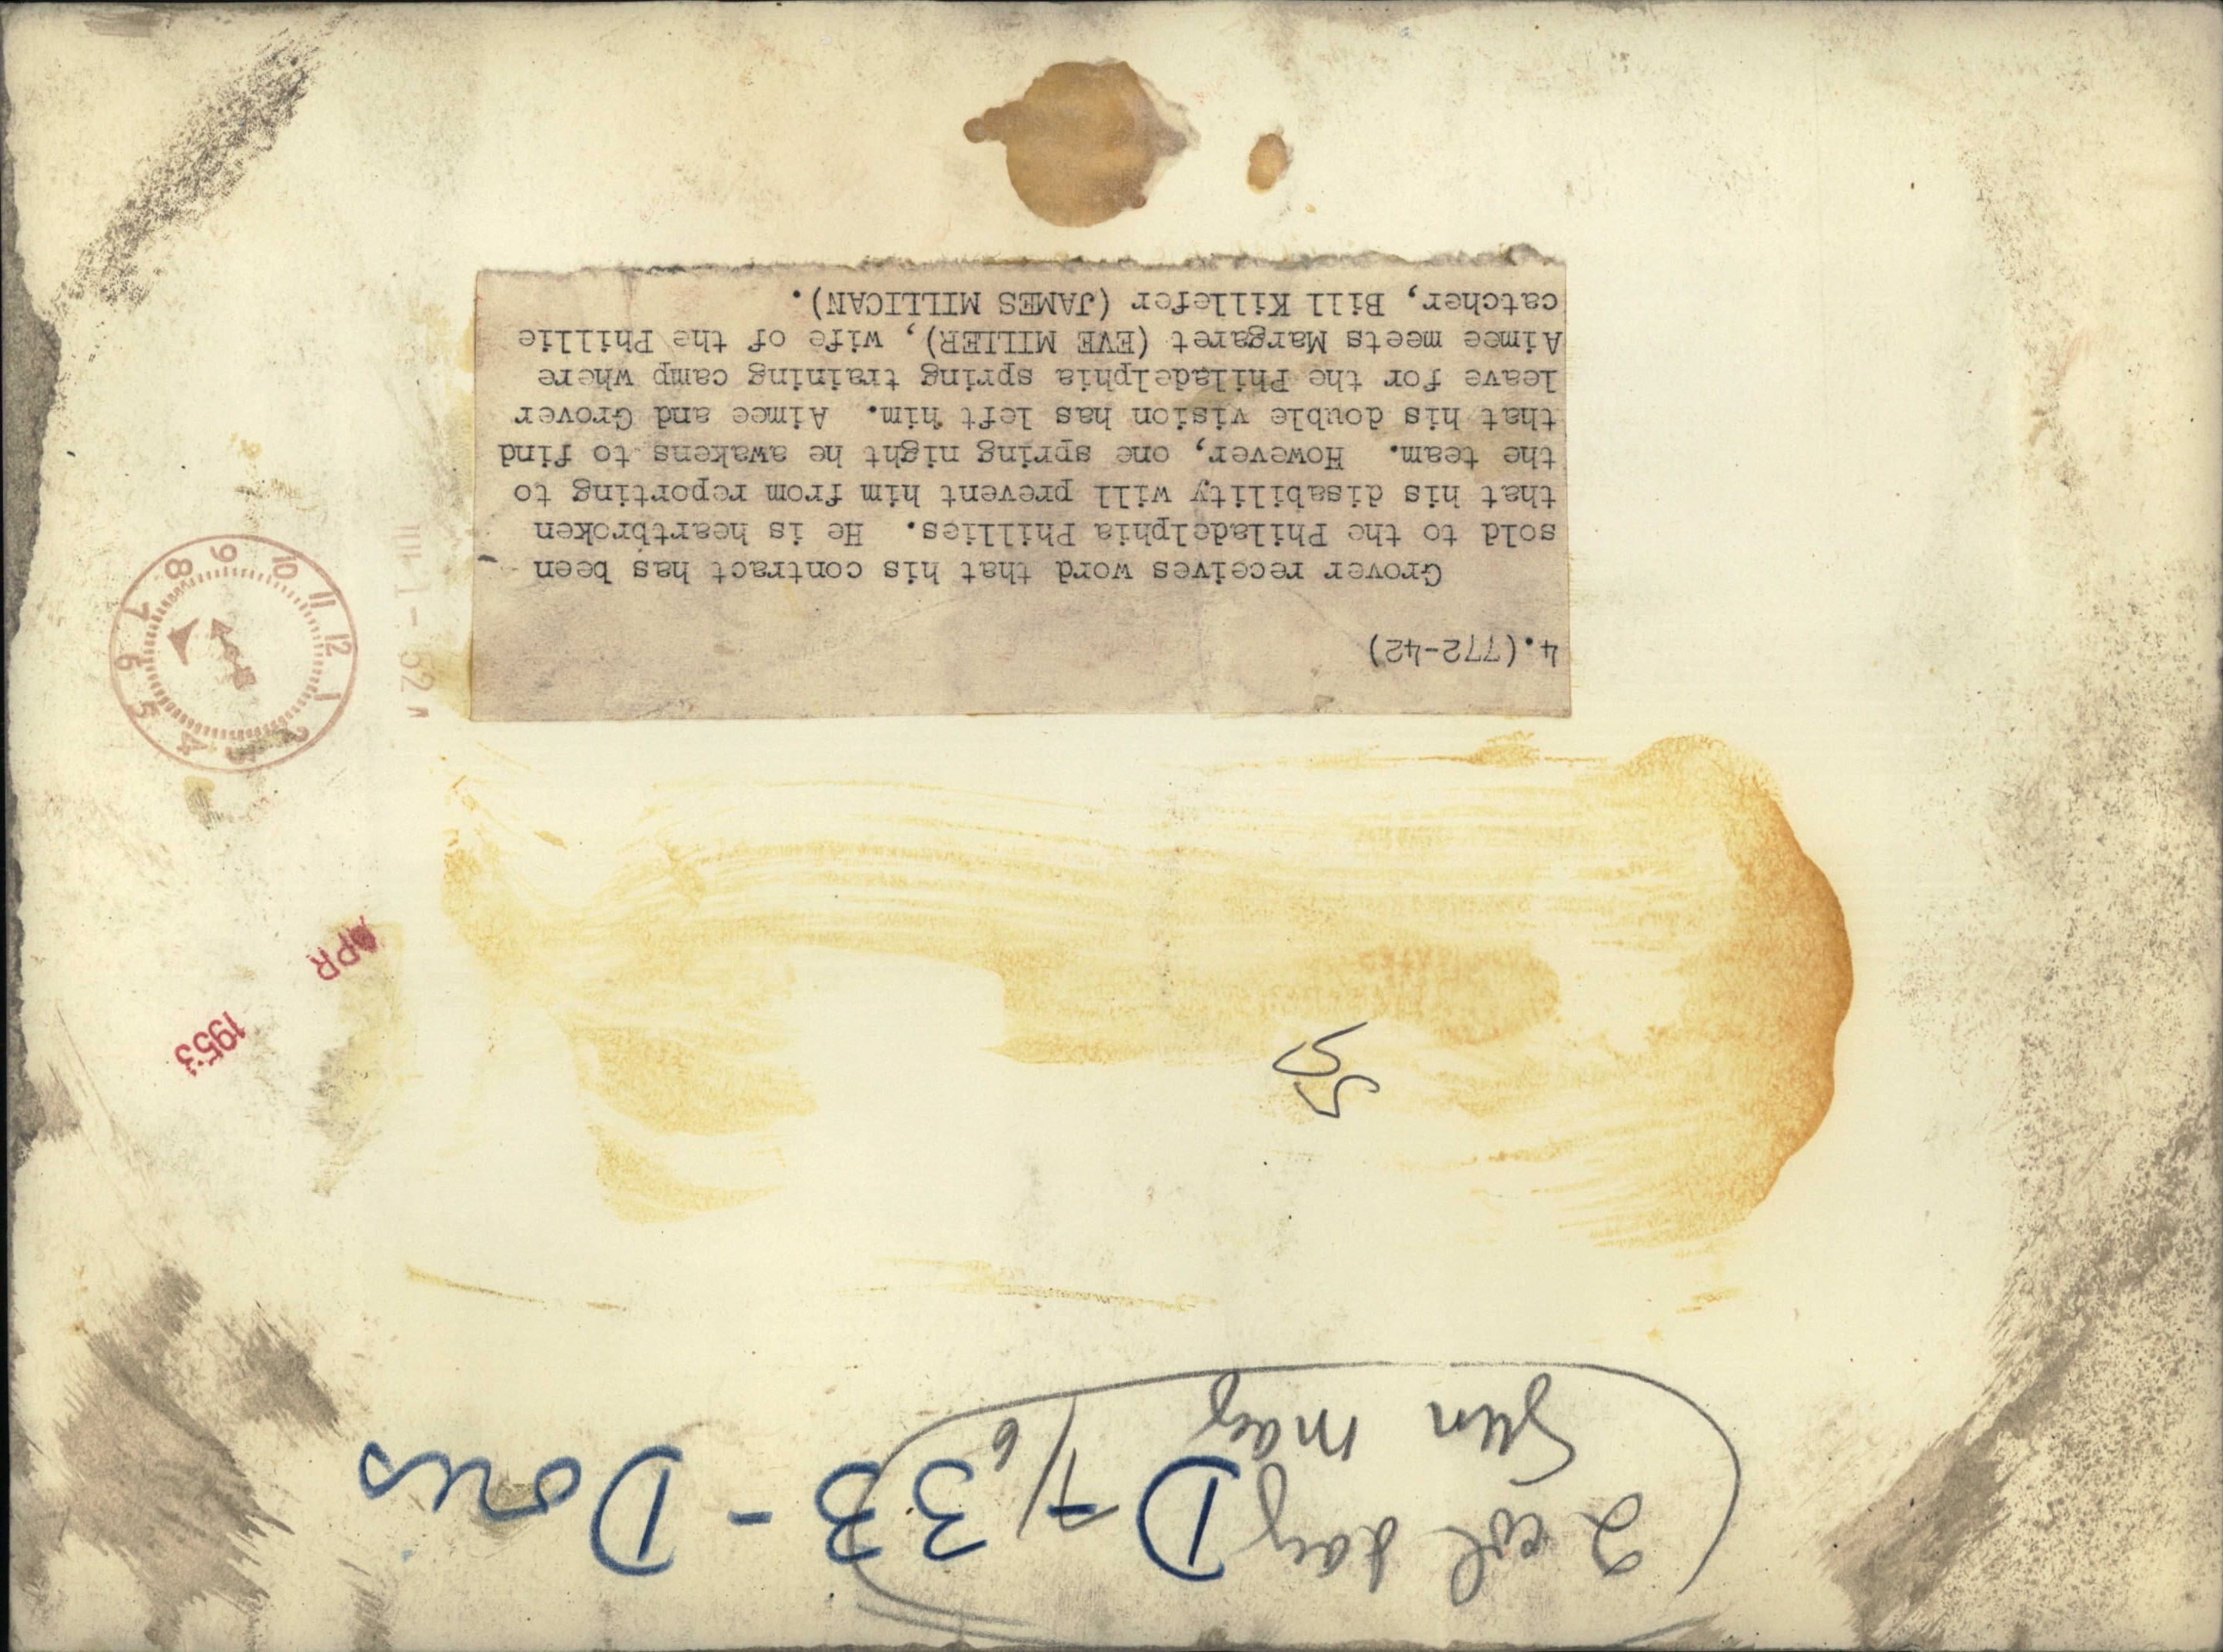 2 col
Sun mag 7/6
Doris
55
APR
1953
12 1 2 3 4 5 6 7 8 9 10 11
4.(772-42)
Grover receives word that his contract has been
sold to the Philadelphia Phillies. He is heartbroken
that his disability will prevent him from reporting to
the team. However, one spring night he awakens to find
that his double vision has left him. Aimee and Grover
leave for the Philadelphia spring training camp where
Aimee meets Margaret (EVE MILLER), wife of the Phillie
catcher, Bill Killefer (JAMES MILLICAN).